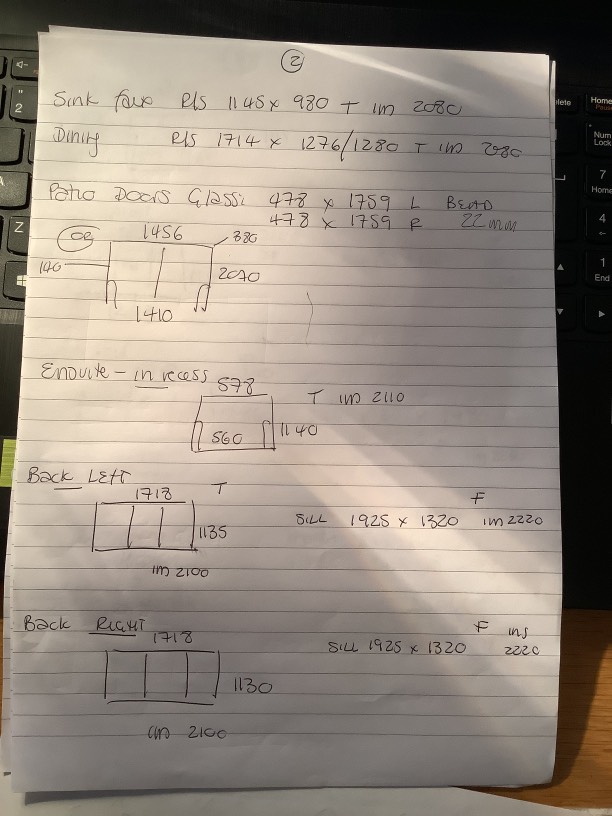 2
Sink face R/S 1145 x 980 T IM 2080
Dining R/S 1714 x 1276/1280 T IM 2080
Patio Doors Glass: 478 x 1759 L BEAD
478 x 1759 R 22mm
OB
1456
380
140
2070
1410
Ensuite - in recess
578
T IM 2110
560
1140
Back LEFT
1718 T
F
SILL 1925 x 1320 IM 2220
1135
IM 2100
Back RIGHT
1718
F INS
SILL 1925 x 1320 2220
1130
IM 2100
Home
Num Lock
7
Home
4
1
End
2
Z